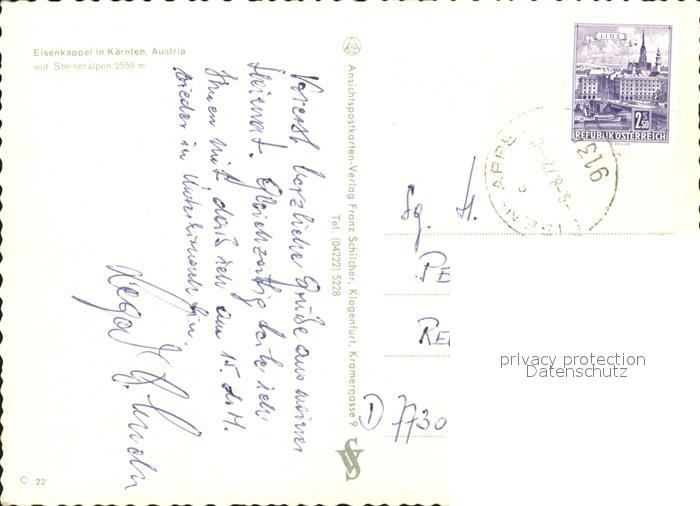 Eisenkappel in Kärnten, Austria
mit Steineralpen 2558 m
Vorerst herzliche Grüße aus meiner
Heimat. Gleichzeitig teile ich
Ihnen mit, daß ich am 15. d. M.
wieder in
bin.
Ansichtspostkarten-Verlag Franz Schilcher, Klagenfurt, Kramergasse 9
Tel. (04222) 5228
LINZ
2.50
REPUBLIK ÖSTERREICH
913
KAPPEL
H.
PE
RE
D 7730
privacy protection
Datenschutz
C 22